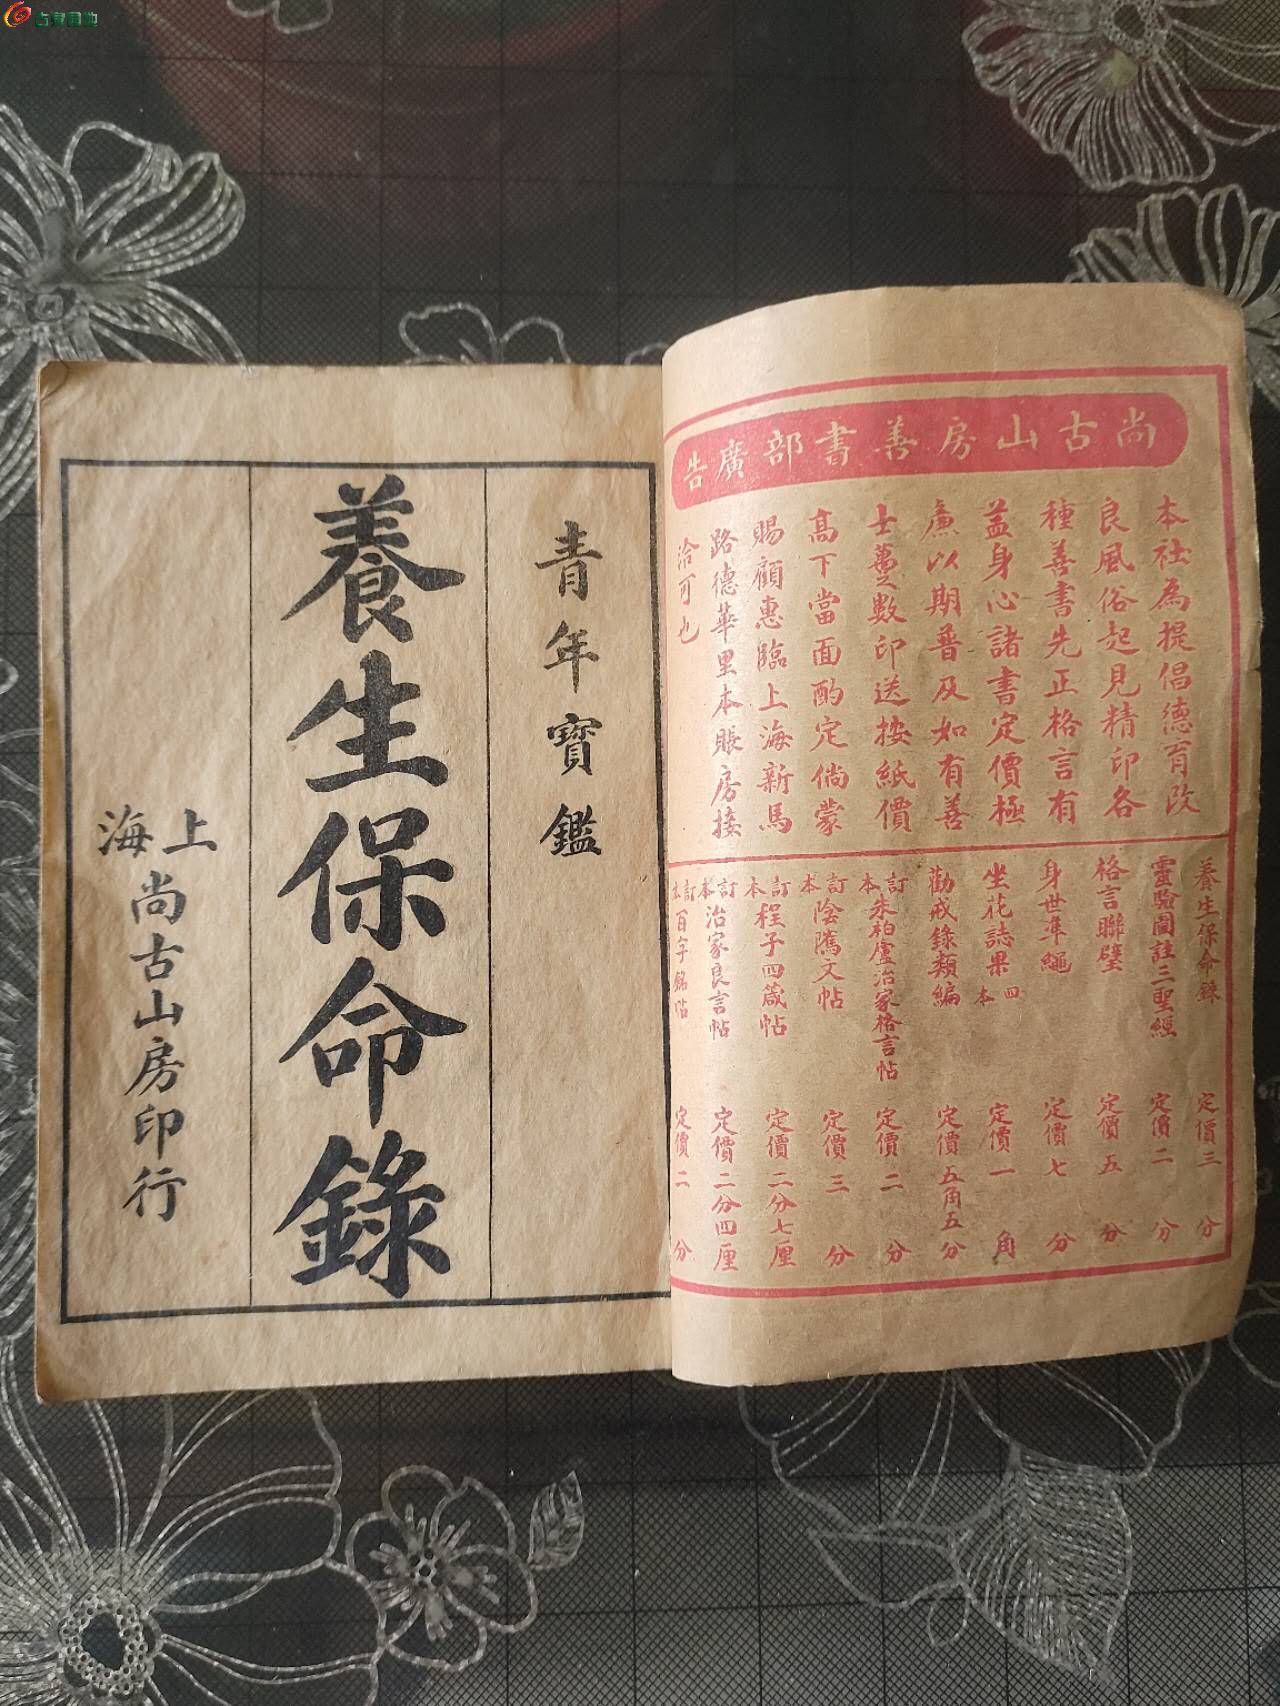 古泉園地
尚古山房善書部廣告
本社為提倡德育改
良風俗起見精印各
種善書先正格言有
益身心諸書定價極
廉以期普及如有善
士薆之數印送按紙價
高下當面酌定倘蒙
賜顧惠臨上海新馬
路德華里本賬房接
洽可也
養生保命錄 定價三分
靈驗圖註三聖經 定價二分
格言聯璧 定價五分
身世準繩 定價七分
坐花誌果 四本 定價一角
勸戒錄類編 定價五角五分
訂本 朱柏廬治家格言帖 定價二分
訂本 陰騭文帖 定價三分
訂本 程子四箴帖 定價二分七厘
訂本 治家良言帖 定價二分四厘
訂本 百字銘帖 定價二分
青年寶鑑
養生保命錄
上海
尚古山房印行